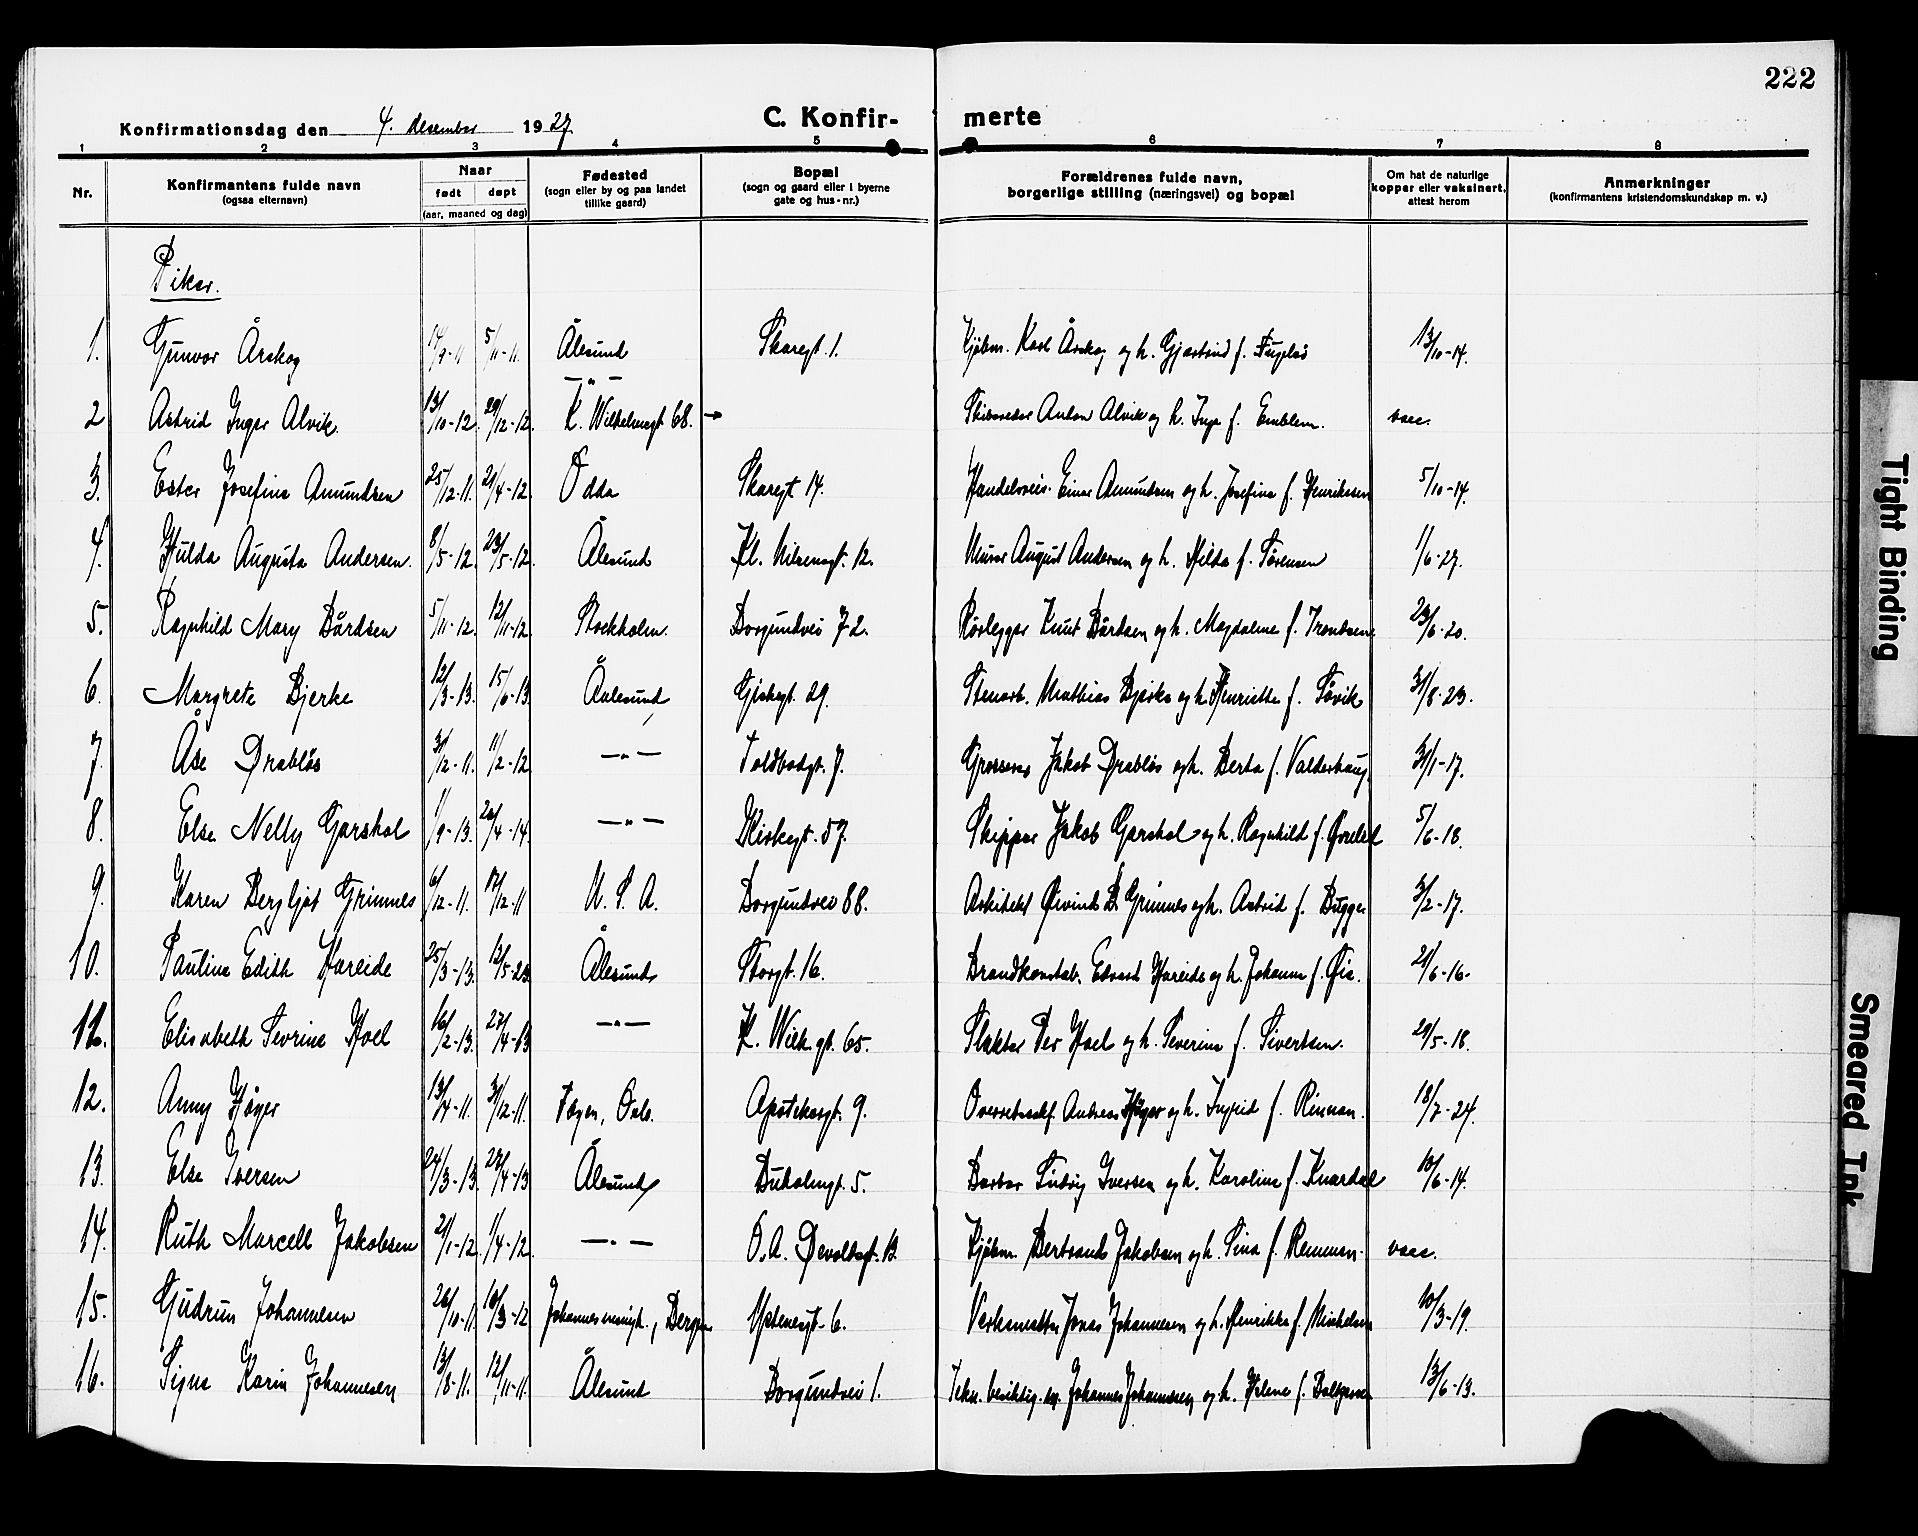 222
Konfirmationsdag den 4. desember 1927.
C. Konfirmerte
1 2 3 4 5 6 7 8
Nr. | Konfirmantens fulde navn (ogsaa efternavn) | Naar født døpt (aar, maaned og dag) | Fødested (sogn eller by og paa landet tillike gaard) | Bopæl (sogn og gaard eller i byerne gate og hus-nr.) | Forældrenes fulde navn, borgerlige stilling (næringsvei) og bopæl | Om hat de naturlige kopper eller vaksinert, attest herom | Anmerkninger (konfirmantens kristendomskundskap m. v.)
Piker.
1. Gunvor Årskog 14/9-11 5/11-11. Ålesund Skaregt. 1. Kjøbm. Karl Årskog og h. Gjertrud f. 13/10-14.
2 Astrid Inger Alvik. 13/10-12. 29/12-12. —"— K. Wilhelmsgt 68. → Anton Alvik og h. Inga f. Emblem. vacc.
3. Ester Josefine Amundsen 25/12-11. 21/4-12. Odda Skaregt 14. Handelsreis. Einar Amundsen og h. Josefine f. Henriksen 5/10-14.
4. Hulda Augusta Andersen. 8/5-12. 23/5-12. Ålesund Kl. Nilsensgt. 12. Murer August Andersen og h. Hilda f. Sørensen 1/6-27.
5. Ragnhild Mary Bårdsen 5/11-12. 12/11-12. Stockholm. Borgundvei 72. Rørlegger Knut Bårdsen og h. Magdalene f. 23/6-20.
6. Margrete Bjerke 12/3-13. 15/6-13. Aalesund Giskegt. 29. Stenarb. Mathias Bjerke og h. Henriette f. Søvik 31/8-23.
7. Åse Drabløs 31/12-11. 11/2-12 —"— Toldbodgt. 7. Grosserer Jakob Drabløs og h. Berta f. Valderhaug. 31/1-17.
8. Else Nelly Garshol 1/9-13. 26/4-14. —"— Kirkegt. 57. Skipper Jakob Garshol og h. Ragnhild f. 5/6-18.
9. Karen Bergljot Grimnes 6/12-11. 17/12-11 U. S. A. Borgundvei 88. Arkitekt Øivind B. Grimnes og h. Astrid f. Bugge 3/2-17.
10. Pauline Edith Hareide 25/3-13. 12/5-23 Ålesund Storgt. 16. Brandkonstab. Edvart Hareide og h. Johanne f. Øie. 21/6-16.
11. Elisabeth Sevrine Hoel 16/2-13. 27/4-13 —"— K. Wilh. gt. 65. Slakter Per Hoel og h. Severine f. Sivertsen. 29/5-18.
12. Anny Høyer 13/4-11. 31/12-11. Oslo. Apotekergt. 9. Overretssakf. Andreas Høyer og h. Ingrid f. Rinnan. 18/7-24.
13. Else Iversen 24/3-13. 27/4-13 Ålesund 5. Barber Ludvig Iversen og h. Karoline f. 10/6-14.
14. Ruth Marcell Jakobsen 21/1-12. 1/4-12. —"— O. A. Devoldsgt. 12. Kjøbm. Jakobsen og h. Sina f. vacc.
15. Gudrun Johannesen 26/10-11. 10/3-12 Johannes menigh., Bergen 6. Jonas Johannesen og h. Henrikke f. 10/3-19.
16. Signe Karin Johannesen 13/8-11. 12/11-11. Ålesund Borgundvei 1. Johannes Johannesen og h. Helene f. 13/6-13.
Tight Binding
Smeared Ink